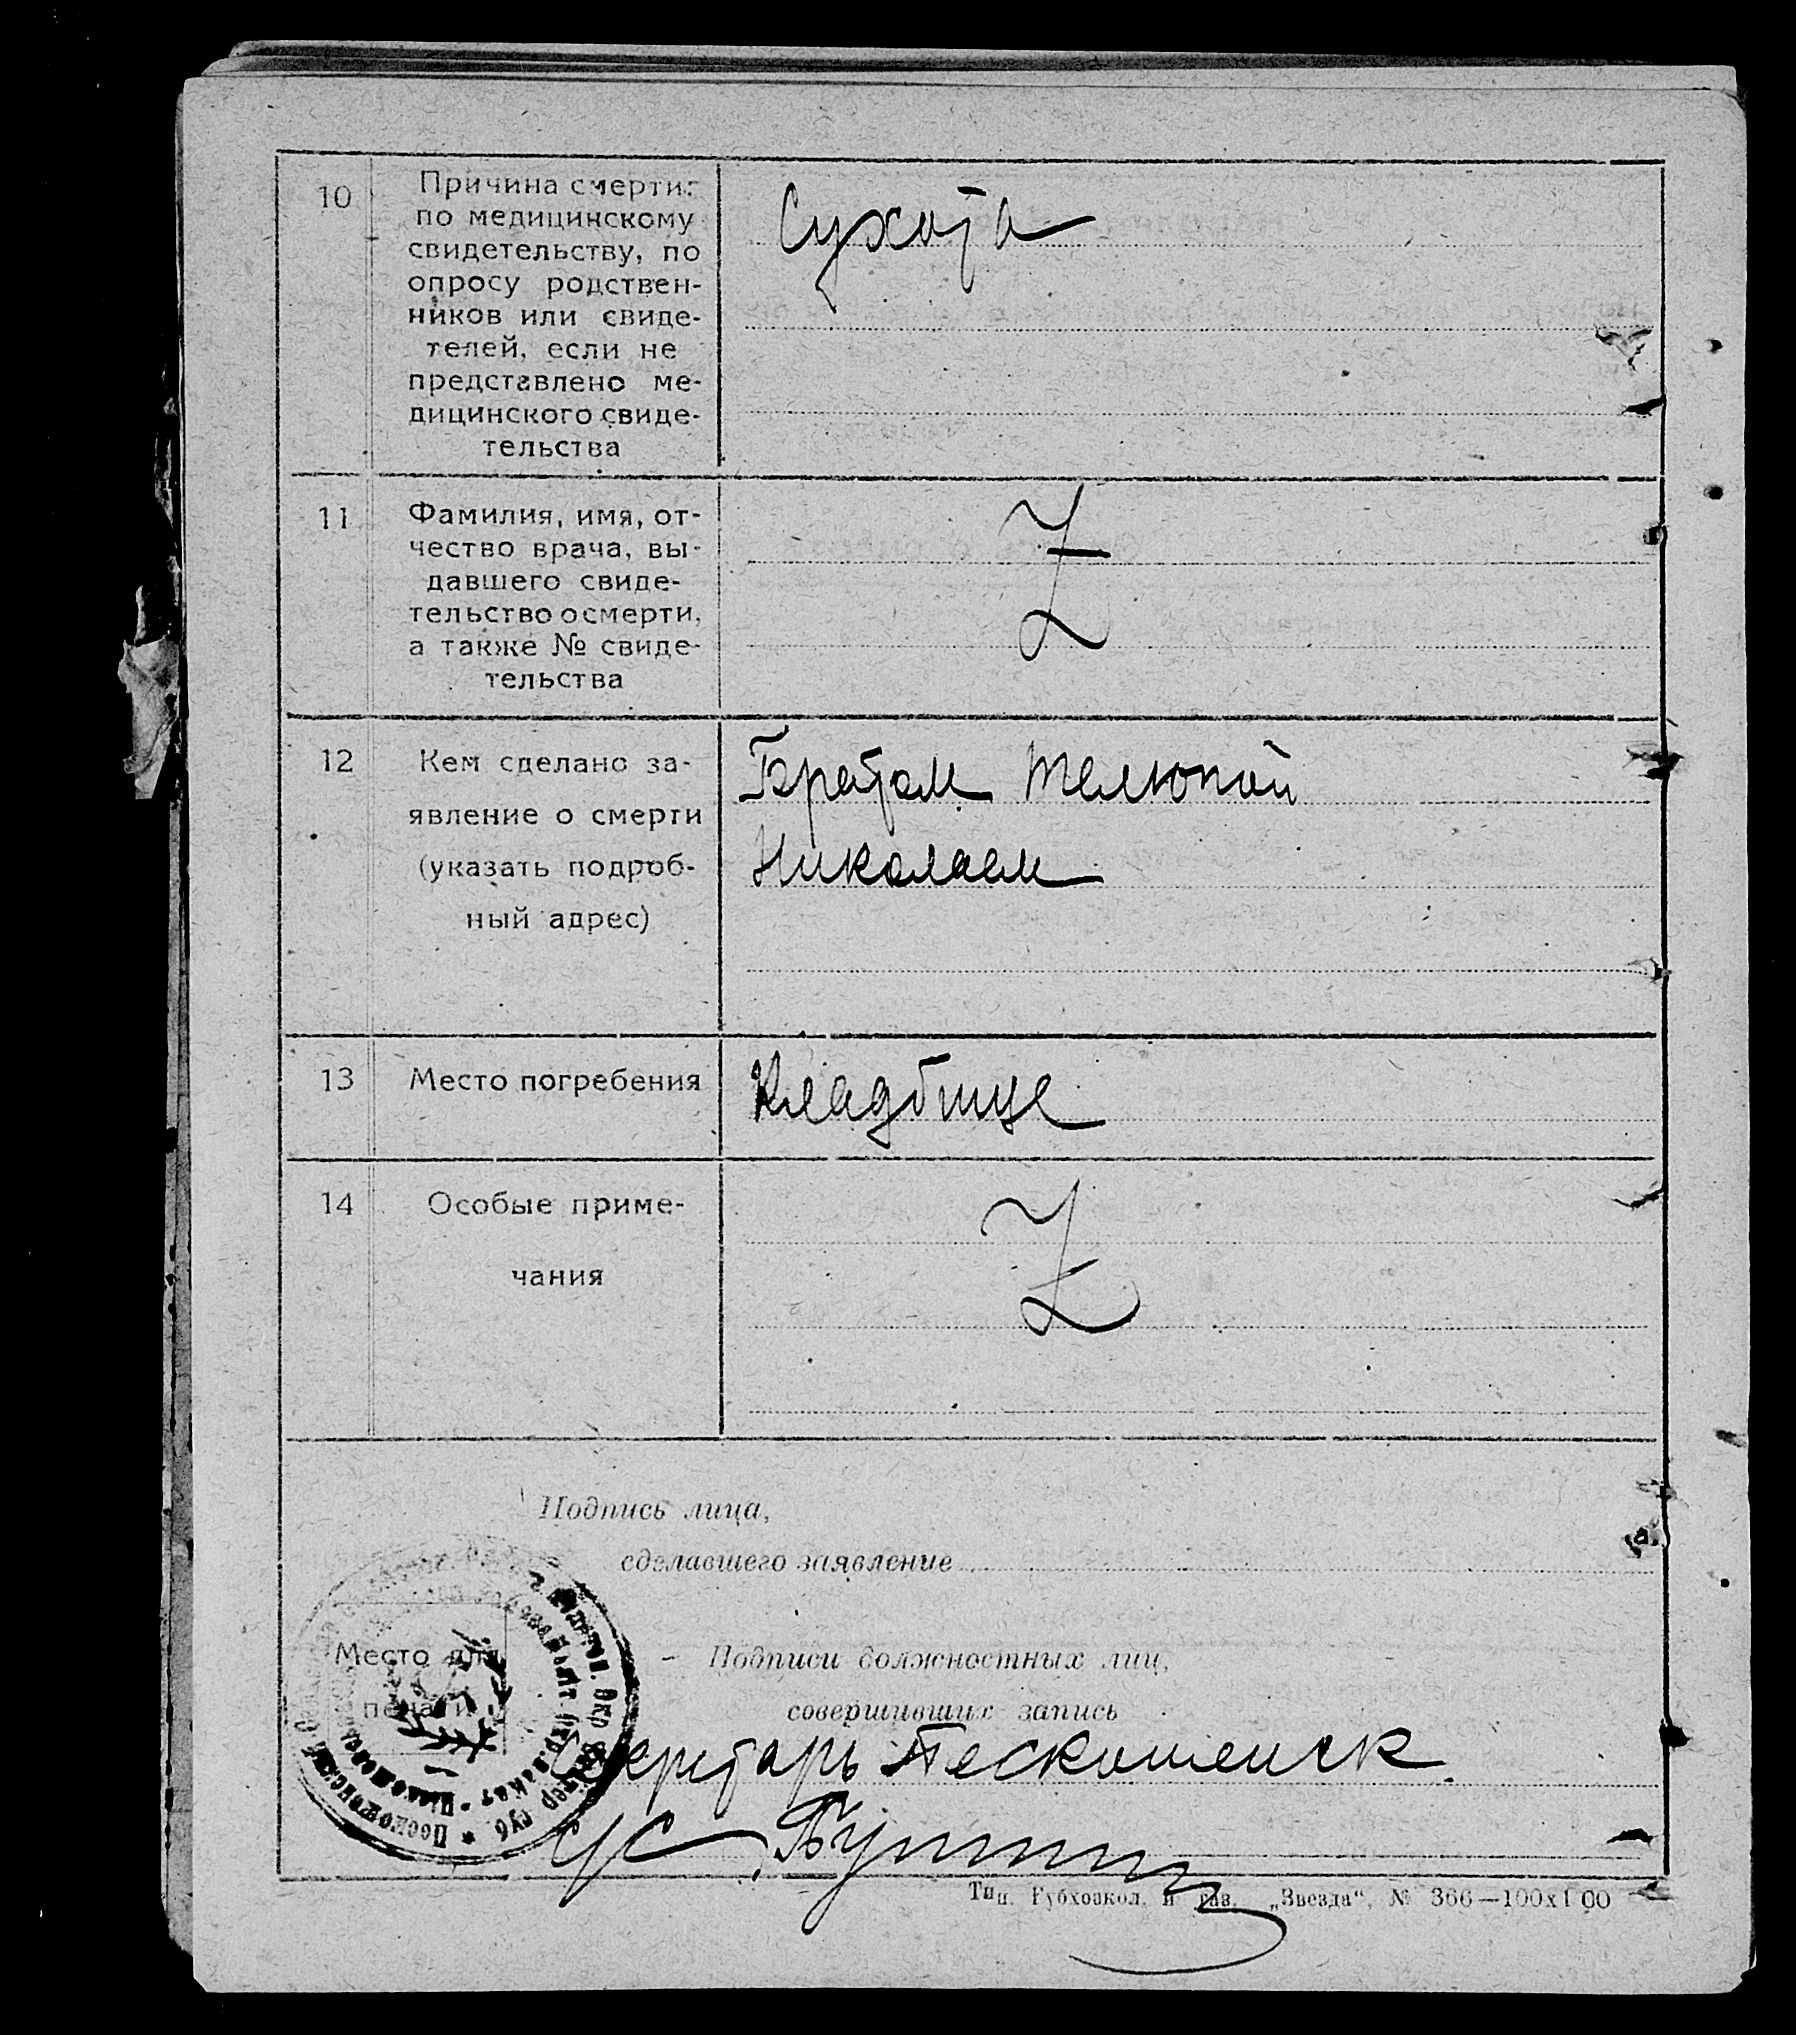 10
Причина смерти:
по медицинскому
свидетельству, по
опросу родствен-
ников или свиде-
телей, если не
представлено ме-
дицинского свиде-
тельства
Сухота
11
Фамилия, имя, от-
чество врача, вы-
давшего свиде-
тельство о смерти,
а также № свиде-
тельства
Z
12
Кем сделано за-
явление о смерти
(указать подроб-
ный адрес)
Братом Телюпой
Николаем
13
Место погребения
Кладбище
14
Особые приме-
чания
Z
Подпись лица,
сделавшего заявление
Место для
печати
Подписи должностных лиц,
совершивших запись
Секретарь
Тип. Губхозкол. и газ. „Звезда“, № 366—100х100